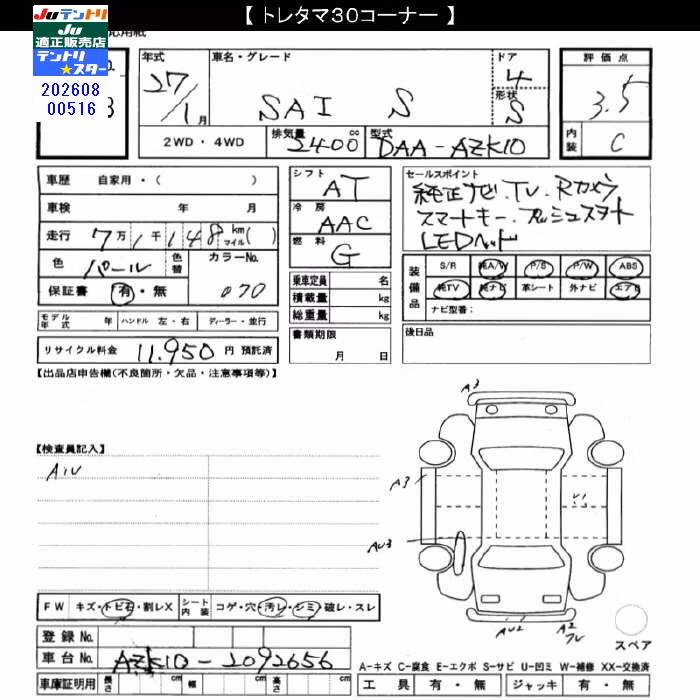 【 トレタマ30コーナー 】
Juテントリ
Ju
適正販売店
テントリ
★スター
応用紙
No.
202608
00516
3
年式
27/1月
車名・グレード
SAI S
ドア
4
形状
S
評価点
3.5
内装
C
2WD・4WD
排気量
2400 cc
型式
DAA-AZK10
車歴 自家用・( )
車検 年 月
走行 7万1千148 km マイル( )
色 パール 色替 カラーNo. 070
保証書 有・無
シフト
AT
冷房
AAC
燃料
G
乗車定員 名
積載量 kg
総重量 kg
書類期限
月 日
セールスポイント
純正ナビ.TV.Rカメラ
スマートキー.プッシュスタート
LEDヘッド
装備品
S/R 純A/W P/S P/W ABS
純TV 純ナビ 革シート 外ナビ エアB
ナビ型番:
後日品
モデル年式 年 ハンドル 左・右 ディーラー・並行
リサイクル料金 11.950 円 預託済
【出品店申告欄(不良箇所・欠品・注意事項等)】
【検査員記入】
AIU
A3
A3
AU3
AU2
A2
スペア
FW キズ・トビ石・割レX シート内装 コゲ・穴・汚レ・シミ・破レ・スレ
登録No.
車台No. AZK10-2092656
車庫証明用 長さ cm 幅 cm 高さ cm
A-キズ C-腐食 E-エクボ S-サビ U-凹ミ W-補修 XX-交換済
工具 有・無 ジャッキ 有・無